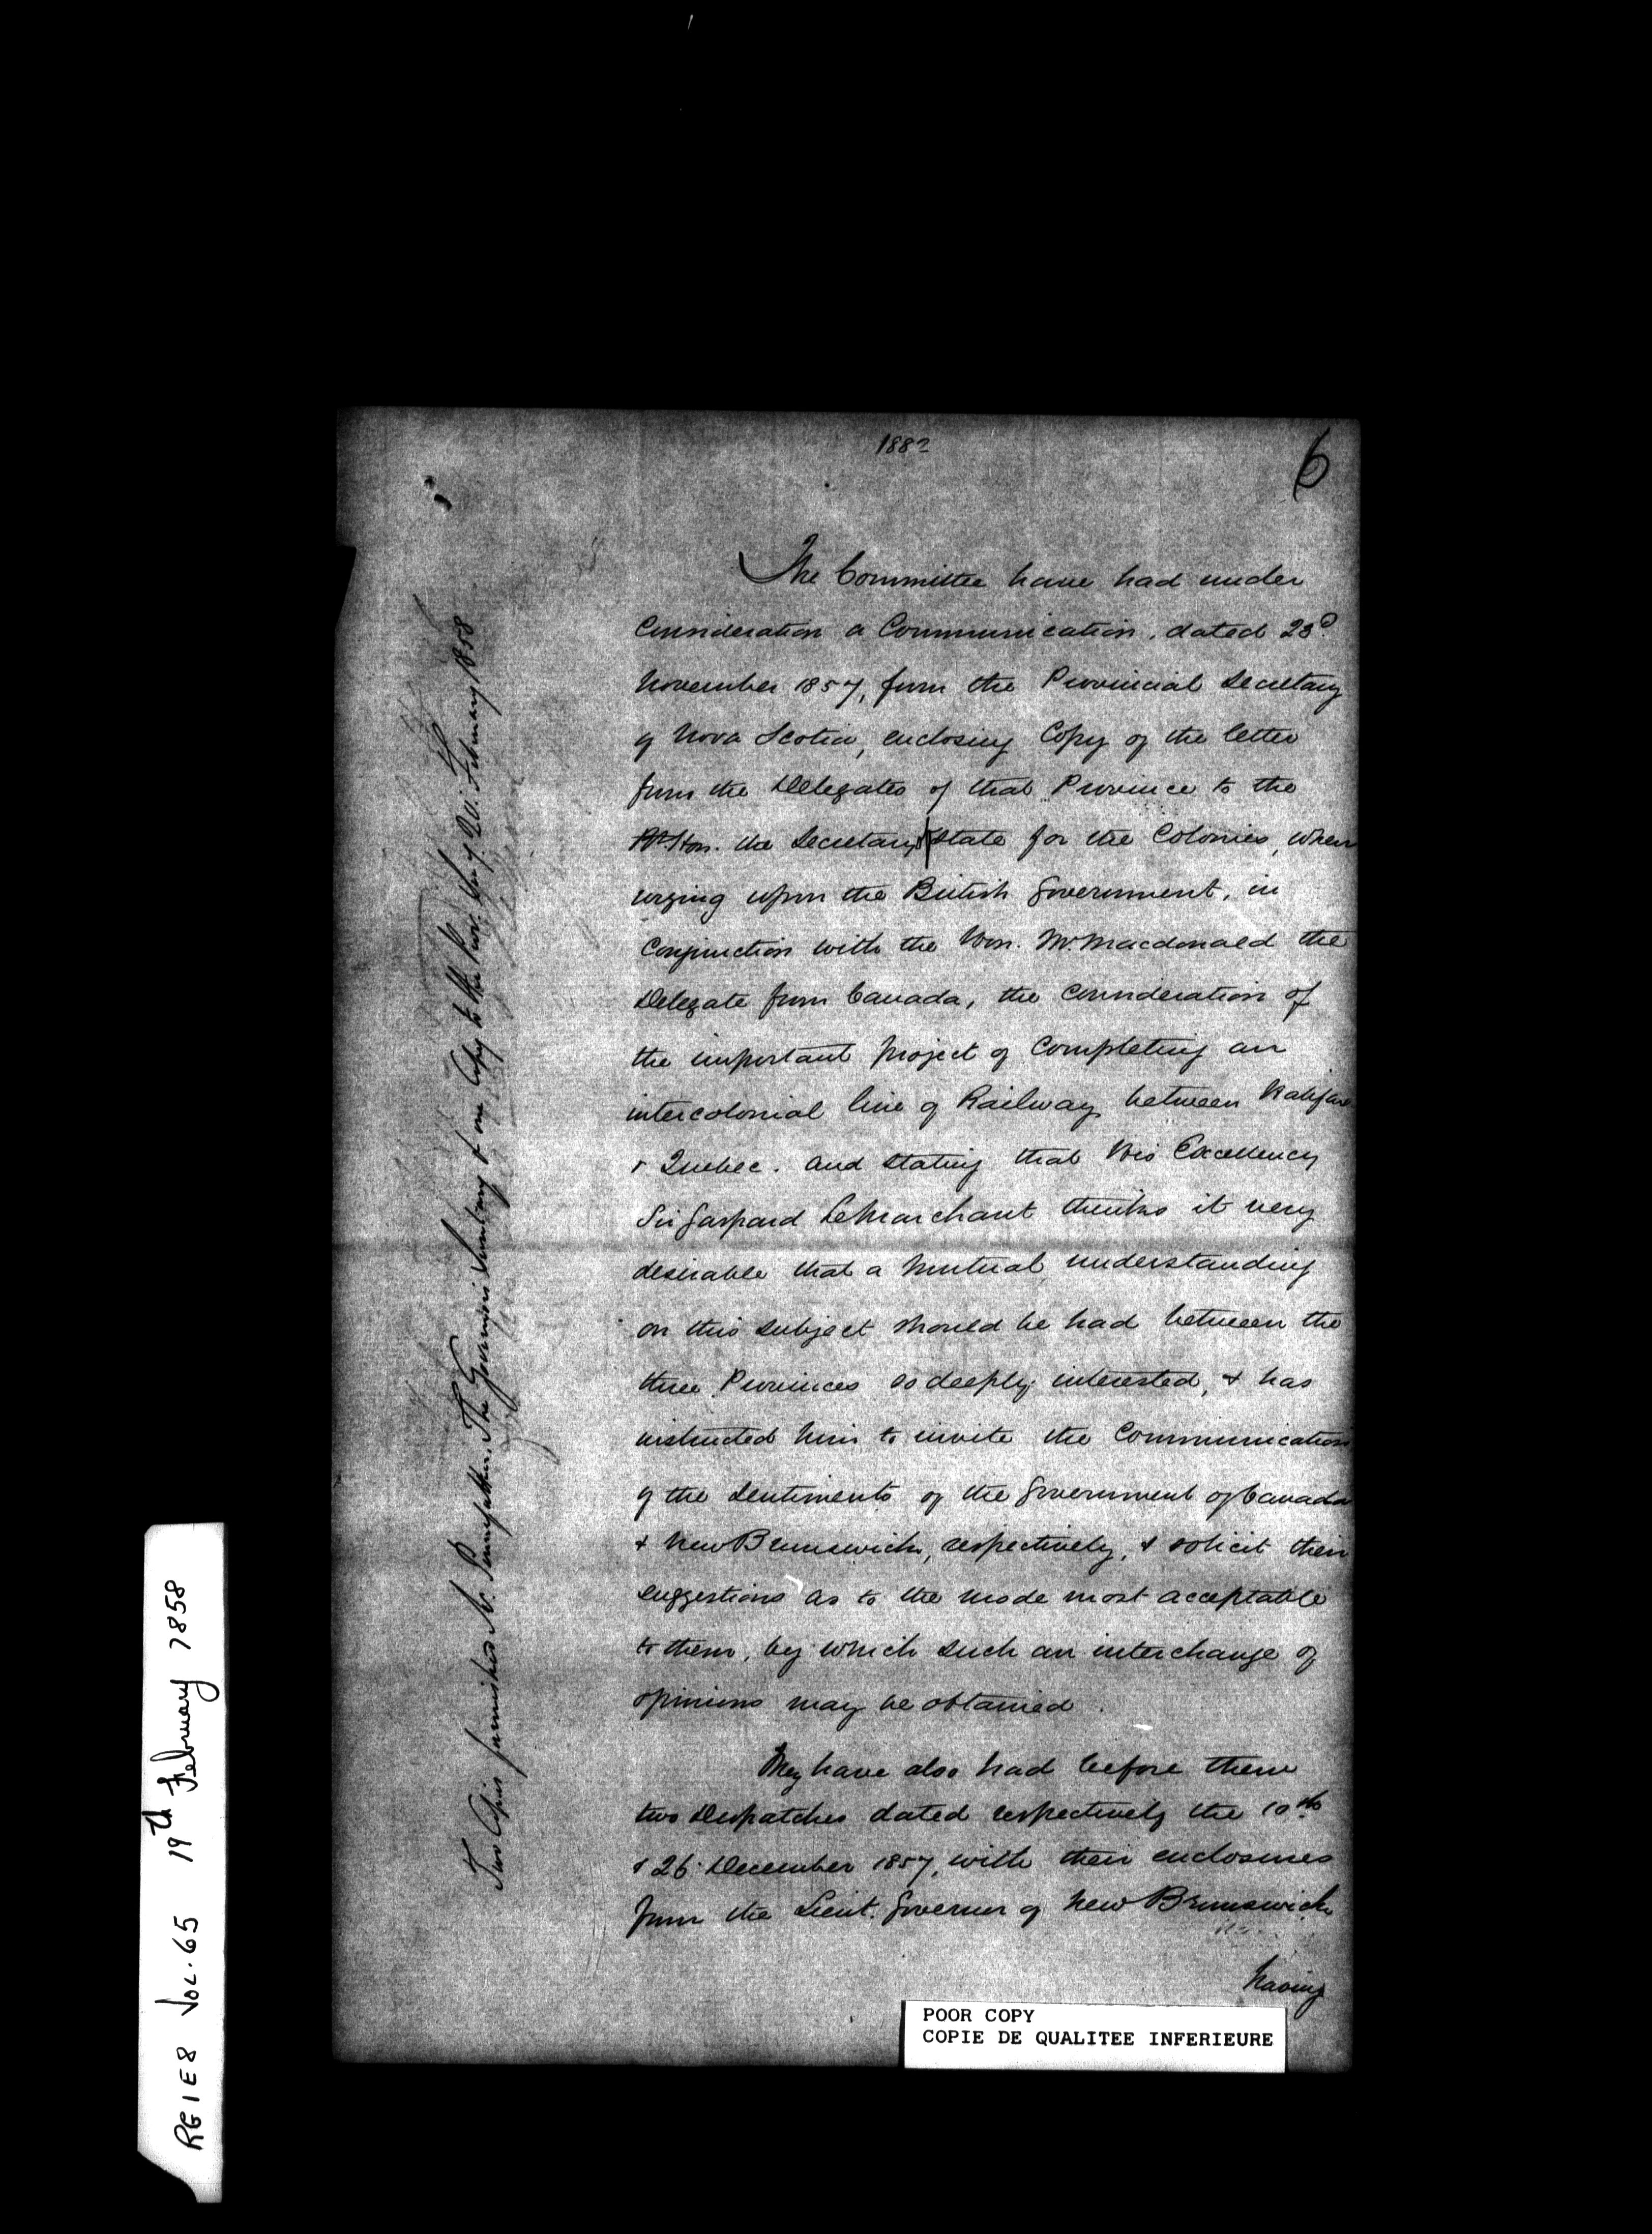 1882
6
The Committee have had under
Consideration a Communication, dated 23d
November 1857, from the Provincial Secretary
of Nova Scotia, enclosing Copy of the letter
from the Delegates of that Province to the
Rt Hon. the Secretary of State for the Colonies, when
urging upon the British Government, in
Conjunction with the Hon. Mr. Macdonald the
Delegate from Canada, the Consideration of
the important project of Completing an
intercolonial line of Railway between Halifax
& Quebec. and stating that His Excellency
Sir Gaspard LeMarchant thinks it very
desirable that a mutual understanding
on this subject should be had between the
three Provinces so deeply interested, & has
instructed him to invite the Communication
of the Sentiments of the Government of Canada
& New Brunswick, respectively, & solicit their
suggestions as to the mode most acceptable
to them, by which such an interchange of
opinions may be obtained.
They have also had before them
two Despatches dated respectively the 10th
& 26 December 1857, with their enclosures
from the Lieut. Governor of New Brunswick
having
Two Copies furnished Mr. Pennefather, The Governor's Secretary & one Copy to the Prov. 20 February 1858
RG1E8 Vol. 65 19th February 1858
POOR COPY
COPIE DE QUALITEE INFERIEURE